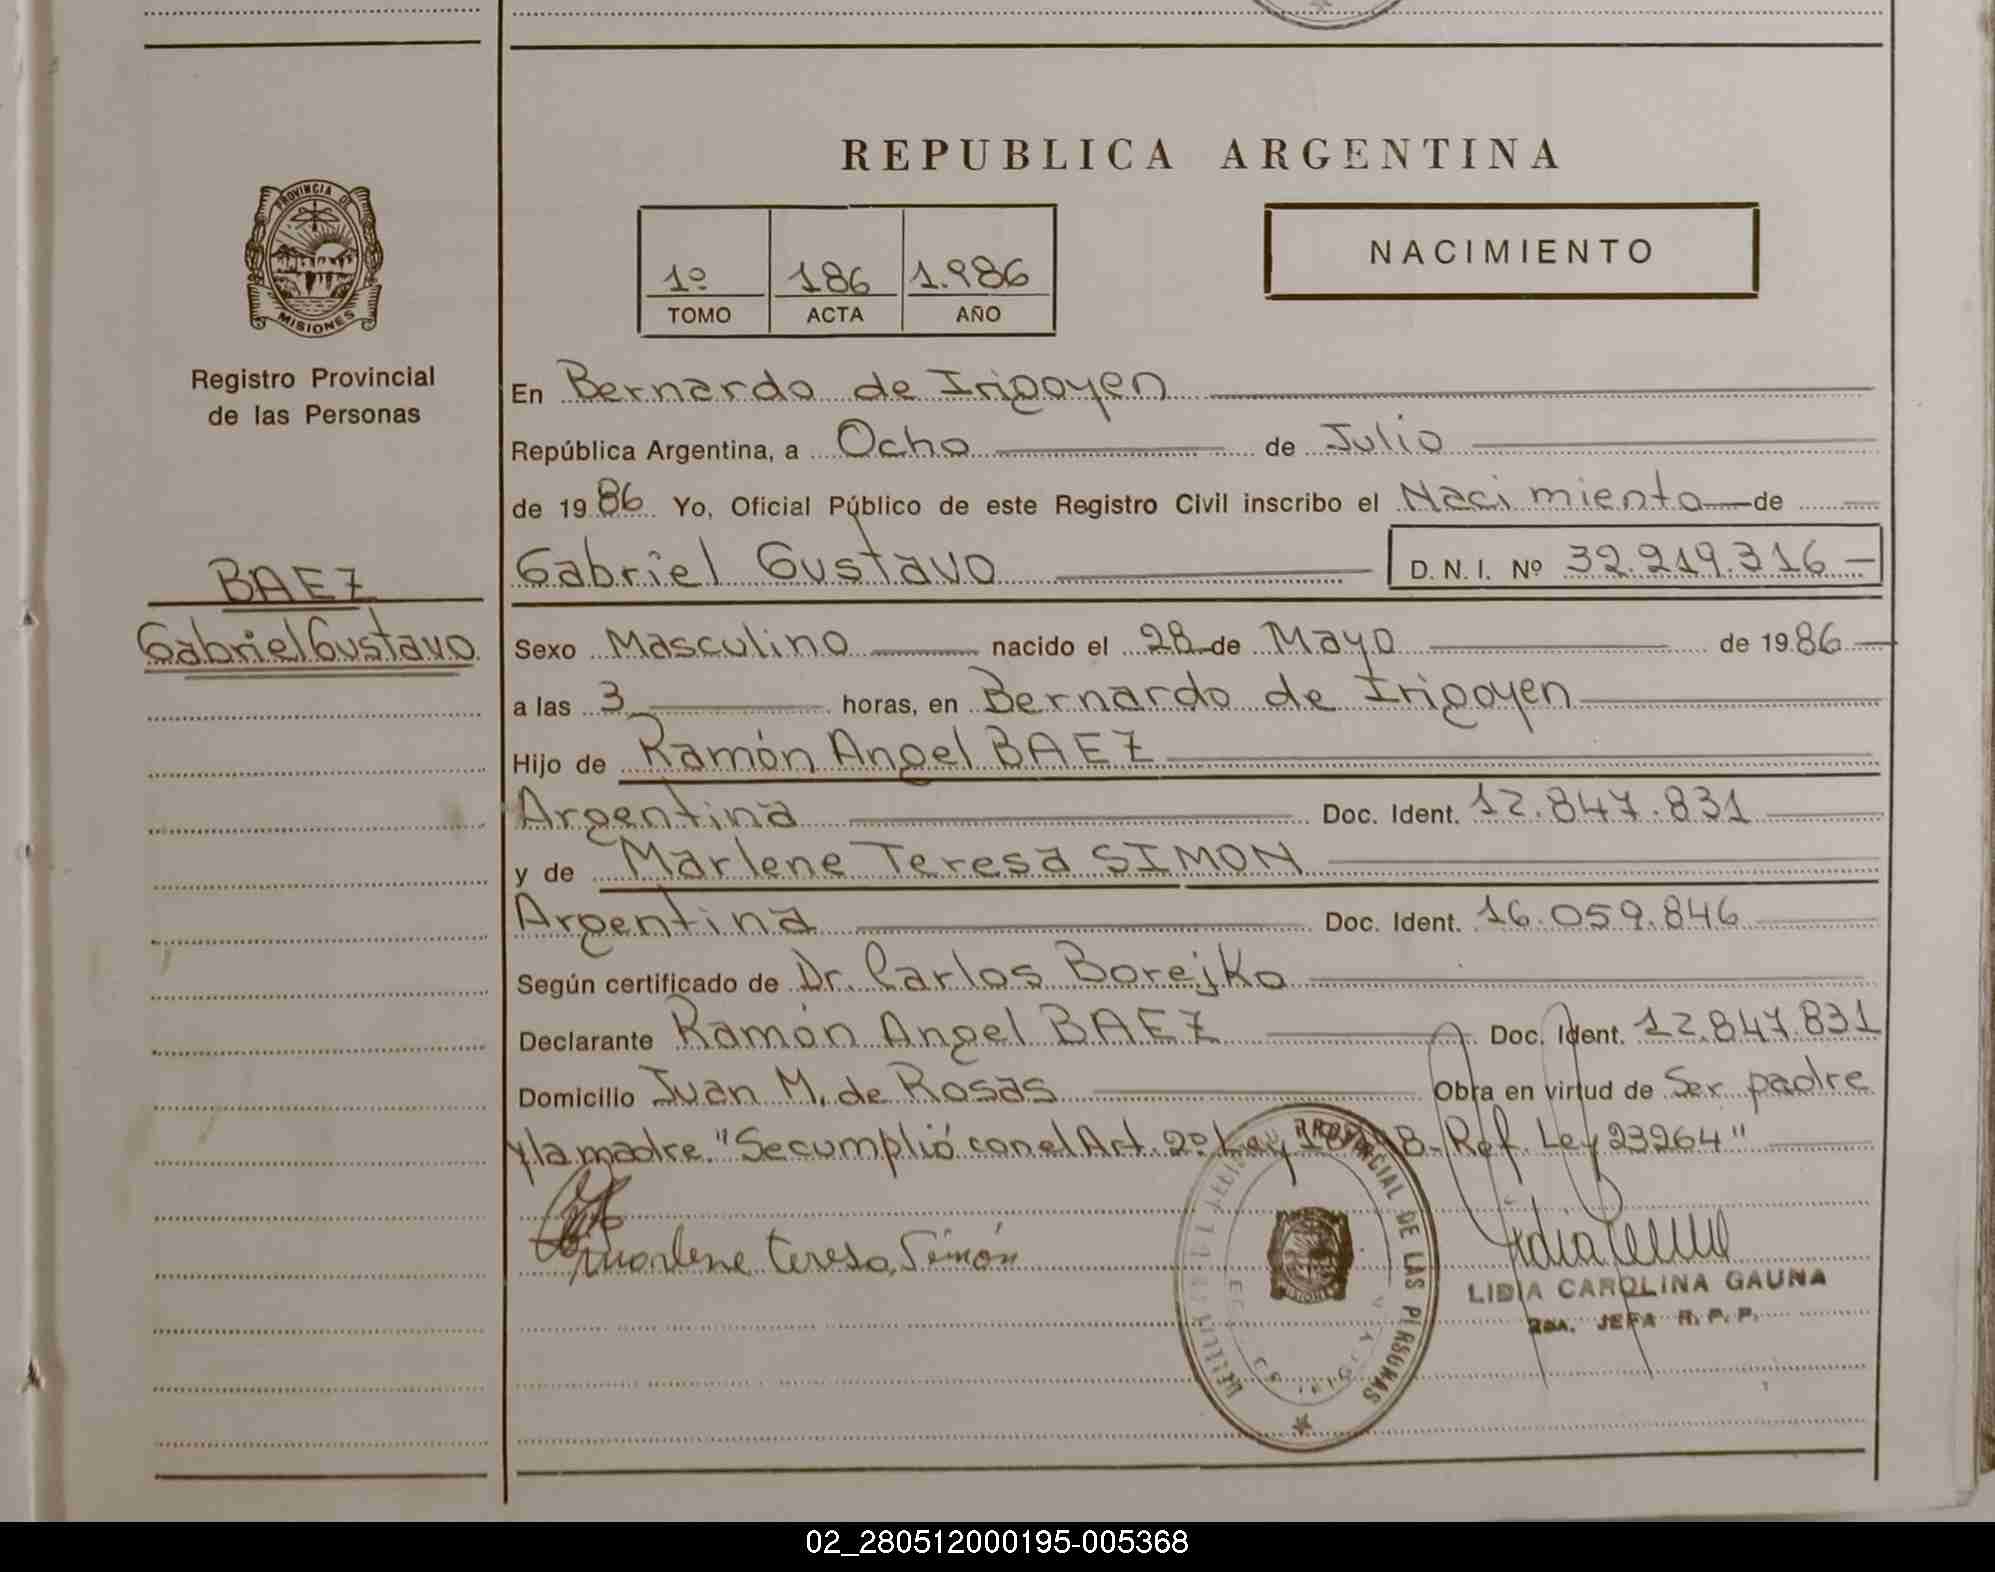 REPUBLICA ARGENTINA
PROVINCIA DE
MISIONES
Registro Provincial
de las Personas
BAEZ
Gabriel Gustavo
1º 186 1.986
TOMO ACTA AÑO
NACIMIENTO
En Bernardo de Irigoyen
República Argentina, a Ocho de Julio
de 1986 Yo, Oficial Público de este Registro Civil inscribo el Nacimiento de
Gabriel Gustavo D. N. I. Nº 32.219.316
Sexo Masculino nacido el 28 de Mayo de 1986
a las 3 horas, en Bernardo de Irigoyen
Hijo de Ramón Angel BAEZ
Argentina Doc. Ident. 12.847.831
y de Marlene Teresa SIMON
Argentina Doc. Ident. 16.059.846
Según certificado de Dr. Carlos Borejko
Declarante Ramón Angel BAEZ Doc. Ident. 12.847.831
Domicilio Juan M. de Rosas Obra en virtud de Ser padre
y la madre. "Se cumplió con el Art. 2º Ley B-Ref. Ley 23264"
Marlene Teresa Simón
PROVINCIAL DE LAS PERSONAS
MISIONES
LIDIA CAROLINA GAUNA
2DA. JEFA R. P. P.
02_280512000195-005368